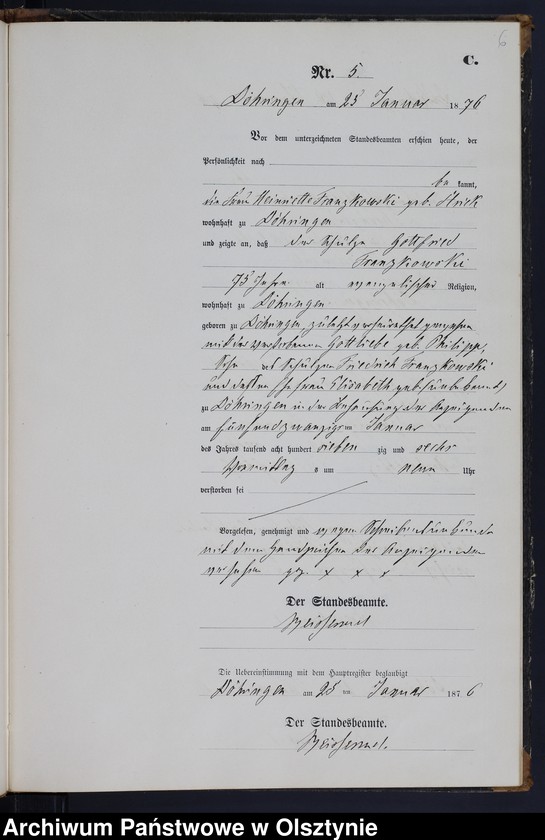 6
C.
Nr. 5.
Döhringen am 25 Januar 1876
Vor dem unterzeichneten Standesbeamten erschien heute, der
Persönlichkeit nach
be kannt,
die Frau Henriette Franzkowski geb.
wohnhaft zu Döhringen
und zeigte an, daß der Schulze Gottfried
Franzkowski
75 Jahre alt evangelischer Religion,
wohnhaft zu Döhringen
geboren zu Döhringen, zuletzt verheirathet gewesen
mit der verstorbenen Gottliebe geb. Philipp,
Sohn des Schulzen Friedrich Franzkowski
und dessen Ehefrau Elisabeth geb. (unbekannt)
zu Döhringen in der Behausung der Anzeigenden
am fünfundzwanzigsten Januar
des Jahres tausend acht hundert sieben zig und sechs
Vormittags um neun Uhr
verstorben sei
Vorgelesen, genehmigt und wegen Schreibensunkunde
mit dem Handzeichen der Anzeigenden
versehen gez. x x x
Der Standesbeamte.
Die Uebereinstimmung mit dem Hauptregister beglaubigt
Döhringen am 25 ten Januar 1876
Der Standesbeamte.
Archiwum Państwowe w Olsztynie